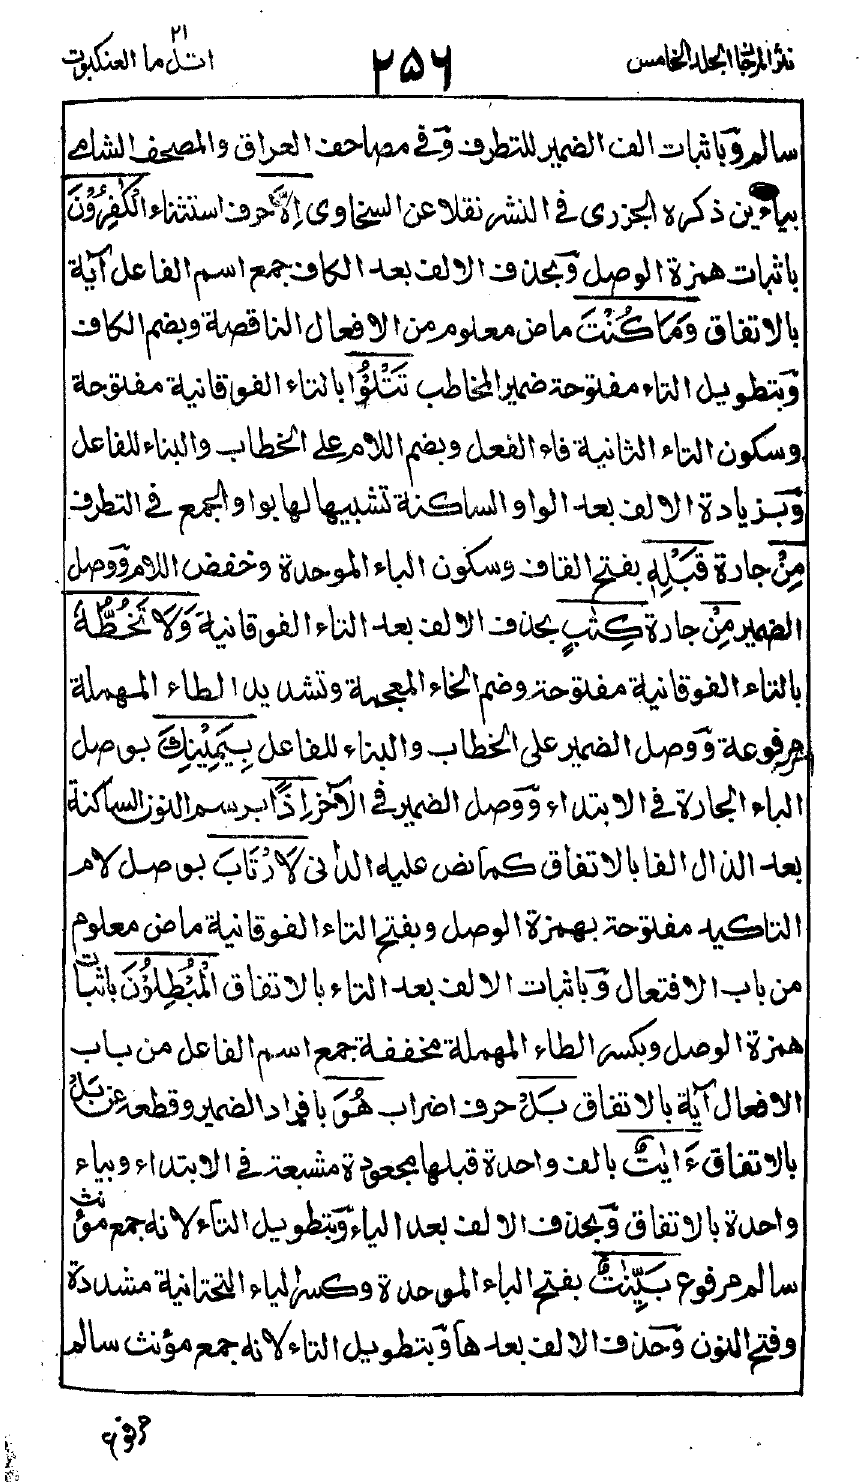 نثر المرجان الجلد الخامس
٢٥٦
٢١
اتل ما العنكبوت
سالم وَباثبات الف الضمير للتطرف وَفي مصاحف العراق والمصحف الشامي
بياءين ذكره الجزرى في النشر نقلا عن السخاوى اِلَّا حرف استثناء الْكٰفِرُوْنَ
باثبات همزة الوصل وَبحذف الالف بعد الكاف جمع اسم الفاعل آية
بالاتفاق وَمَا كُنْتَ ماض معلوم من الافعال الناقصة وبضم الكاف
وَبتطويل التاء مفتوحة ضمير المخاطب تَتْلُوْا بالتاء الفوقانية مفتوحة
وسكون التاء الثانية فاء الفعل وبضم اللام على الخطاب والبناء للفاعل
وَبزيادة الالف بعد الواو الساكنة تشبيها لها بواو الجمع في التطرف
مِنْ جارة قَبْلِهٖ بفتح القاف وسكون الباء الموحدة وخفض اللام وَوصل
الضمير مِنْ جارة كِتٰبٍ بحذف الالف بعد التاء الفوقانية وَلَا تَخُطُّهٗ
بالتاء الفوقانية مفتوحة وضم الخاء المعجمة وتشديد الطاء المهملة
مرفوعة وَوصل الضمير على الخطاب والبناء للفاعل بِيَمِيْنِكَ بوصل
الباء الجارة في الابتداء وَوصل الضمير في الآخر اِذًا برسم النون الساكنة
بعد الذال الفا بالاتفاق كما نص عليه الدانى لَارْتَابَ بوصل لام
التاكيد مفتوحة بهمزة الوصل وبفتح التاء الفوقانية ماض معلوم
من باب الافتعال وَباثبات الالف بعد التاء بالاتفاق الْمُبْطِلُوْنَ باثبات
همزة الوصل وبكسر الطاء المهملة مخففة جمع اسم الفاعل من باب
الافعال آية بالاتفاق بَلْ حرف اضراب هُوَ بافراد الضمير وقطعه عن بَلْ
بالاتفاق ءَايٰتٌ بالف واحدة قبلها مجعودة مشبعة في الابتداء وبياء
واحدة بالاتفاق وَبحذف الالف بعد الياء وَبتطويل التاء لانه جمع مؤنث
سالم مرفوع بَيِّنٰتٌ بفتح الباء الموحدة وكسر الياء التحتانية مشددة
وفتح النون وَحذف الالف بعدها وَبتطويل التاء لانه جمع مؤنث سالم
مرفوع